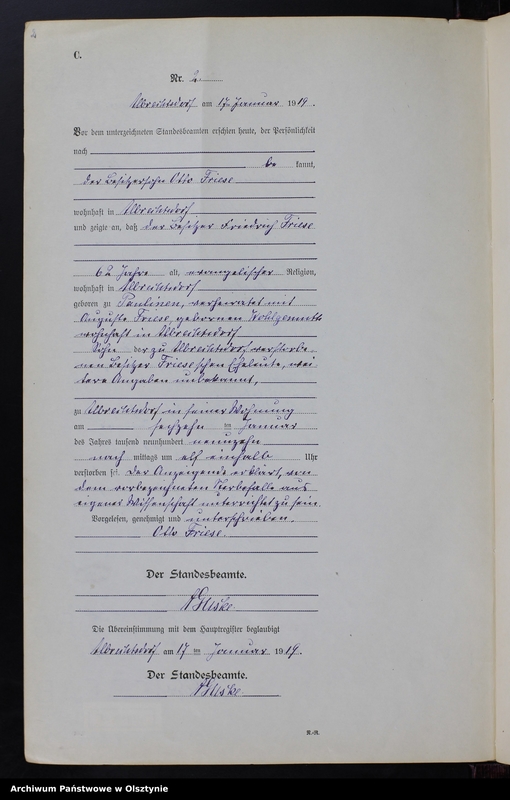 2
C.
Nr. 2
Albrechtsdorf am 17ten Januar 1919.
Vor dem unterzeichneten Standesbeamten erschien heute, der Persönlichkeit
nach
be kannt,
der Besitzersohn Otto Friese
wohnhaft in Albrechtsdorf
und zeigte an, daß der Besitzer Friedrich Friese
62 Jahre alt, evangelischer Religion,
wohnhaft in Albrechtsdorf
geboren zu Paulinen, verheiratet mit
Auguste Friese, geborenen Wohlgemuth
wohnhaft in Albrechtsdorf
Sohn der zu Albrechtsdorf verstorbe-
nen Besitzer Friese'schen Eheleute, wei-
tere Angaben unbekannt,
zu Albrechtsdorf in seiner Wohnung
am sechzehnten Januar
des Jahres tausend neunhundert neunzehn
nach mittags um elf einhalb Uhr
verstorben sei. Der Anzeigende erklärt, von
dem vorbezeichneten Sterbefalle aus
eigener Wissenschaft unterrichtet zu sein.
Vorgelesen, genehmigt und unterschrieben.
Otto Friese.
Der Standesbeamte.
Die Übereinstimmung mit dem Hauptregister beglaubigt
Albrechtsdorf am 17ten Januar 1919.
Der Standesbeamte.
R.-R.
Archiwum Państwowe w Olsztynie